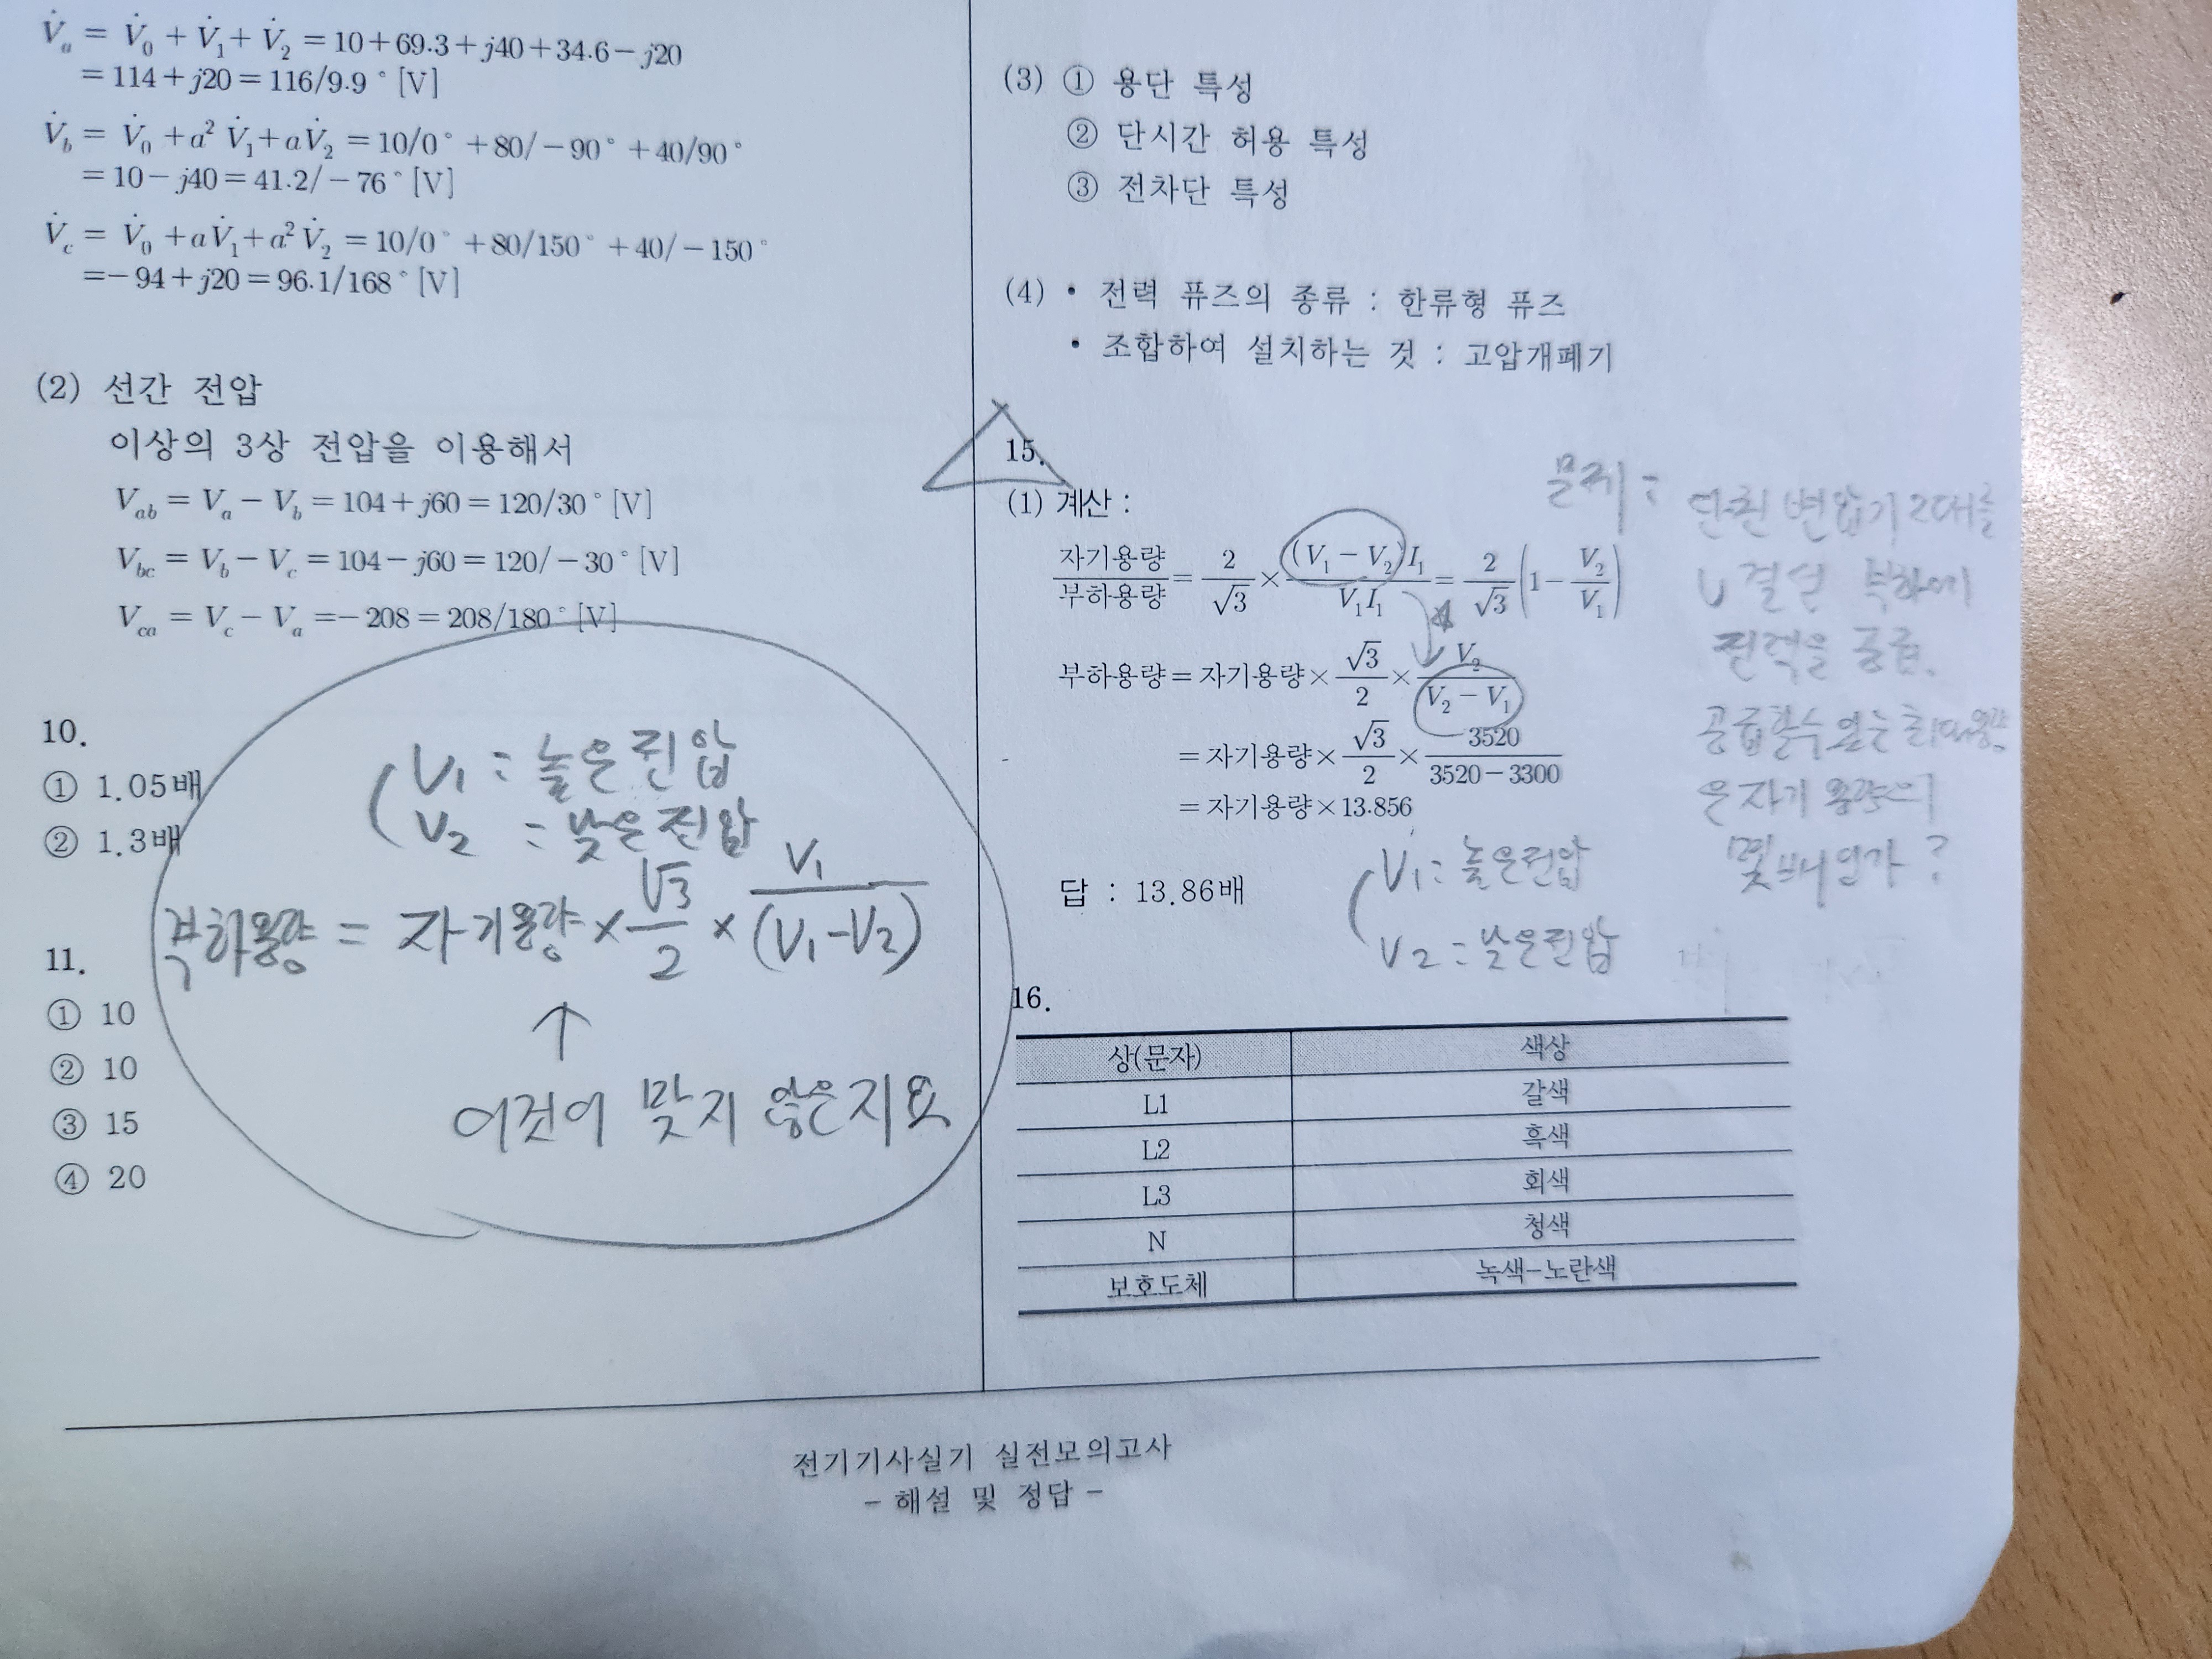 V̇a = V̇0 + V̇1 + V̇2 = 10+69.3+j40+34.6−j20
= 114+j20 = 116/9.9° [V]
V̇b = V̇0 + a² V̇1 + aV̇2 = 10/0° +80/−90° +40/90°
= 10−j40 = 41.2/−76° [V]
V̇c = V̇0 + aV̇1 + a² V̇2 = 10/0° +80/150° +40/−150°
=−94+j20 = 96.1/168° [V]
(2) 선간 전압
이상의 3상 전압을 이용해서
Vab = Va − Vb = 104+j60 = 120/30° [V]
Vbc = Vb − Vc = 104−j60 = 120/−30° [V]
Vca = Vc − Va =−208 = 208/180° [V]
10.
① 1.05배
② 1.3배
V1 : 높은전압
V2 : 낮은전압
부하용량 = 자기용량 × √3/2 × V1/(V1−V2)
↑
이것이 맞지 않은지요
11.
① 10
② 10
③ 15
④ 20
(3) ① 용단 특성
② 단시간 허용 특성
③ 전차단 특성
(4) • 전력 퓨즈의 종류 : 한류형 퓨즈
• 조합하여 설치하는 것 : 고압개폐기
15.
(1) 계산 :
자기용량/부하용량 = 2/√3 × (V1−V2)I1/V1I1 = 2/√3 (1−V2/V1)
부하용량 = 자기용량× √3/2 × V2/(V2−V1)
= 자기용량× √3/2 × 3520/(3520−3300)
= 자기용량×13.856
답 : 13.86배
V1 : 높은전압
V2 : 낮은전압
문제 : 단권 변압기 2대를
V결선 부하에
전력을 공급.
공급할수 있는 최대용량
은 자기 용량의
몇배인가?
16.
상(문자) 색상
L1 갈색
L2 흑색
L3 회색
N 청색
보호도체 녹색-노란색
전기기사실기 실전모의고사
- 해설 및 정답 -